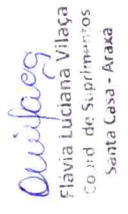 Flávia Luciana Vilaça
Coord de Suprimentos
Santa Casa - Araxá